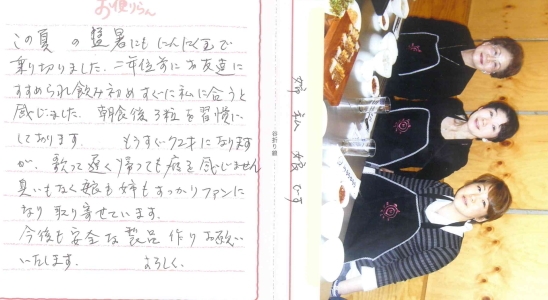 お便りらん
この夏の猛暑にもにんにく玉で
乗り切りました。二年位前にお友達に
すすめられ飲み初めすぐに私に合うと
感じました。朝食後3粒を習慣に
しております。 もうすぐ になります
が、歌って遅く帰っても疲を感じません
臭いもなく娘も姉もすっかりファンに
なり取り寄せています。
今後も安全な製品作りお願い
いたします。 よろしく。
谷折り線
姉 私 娘 です